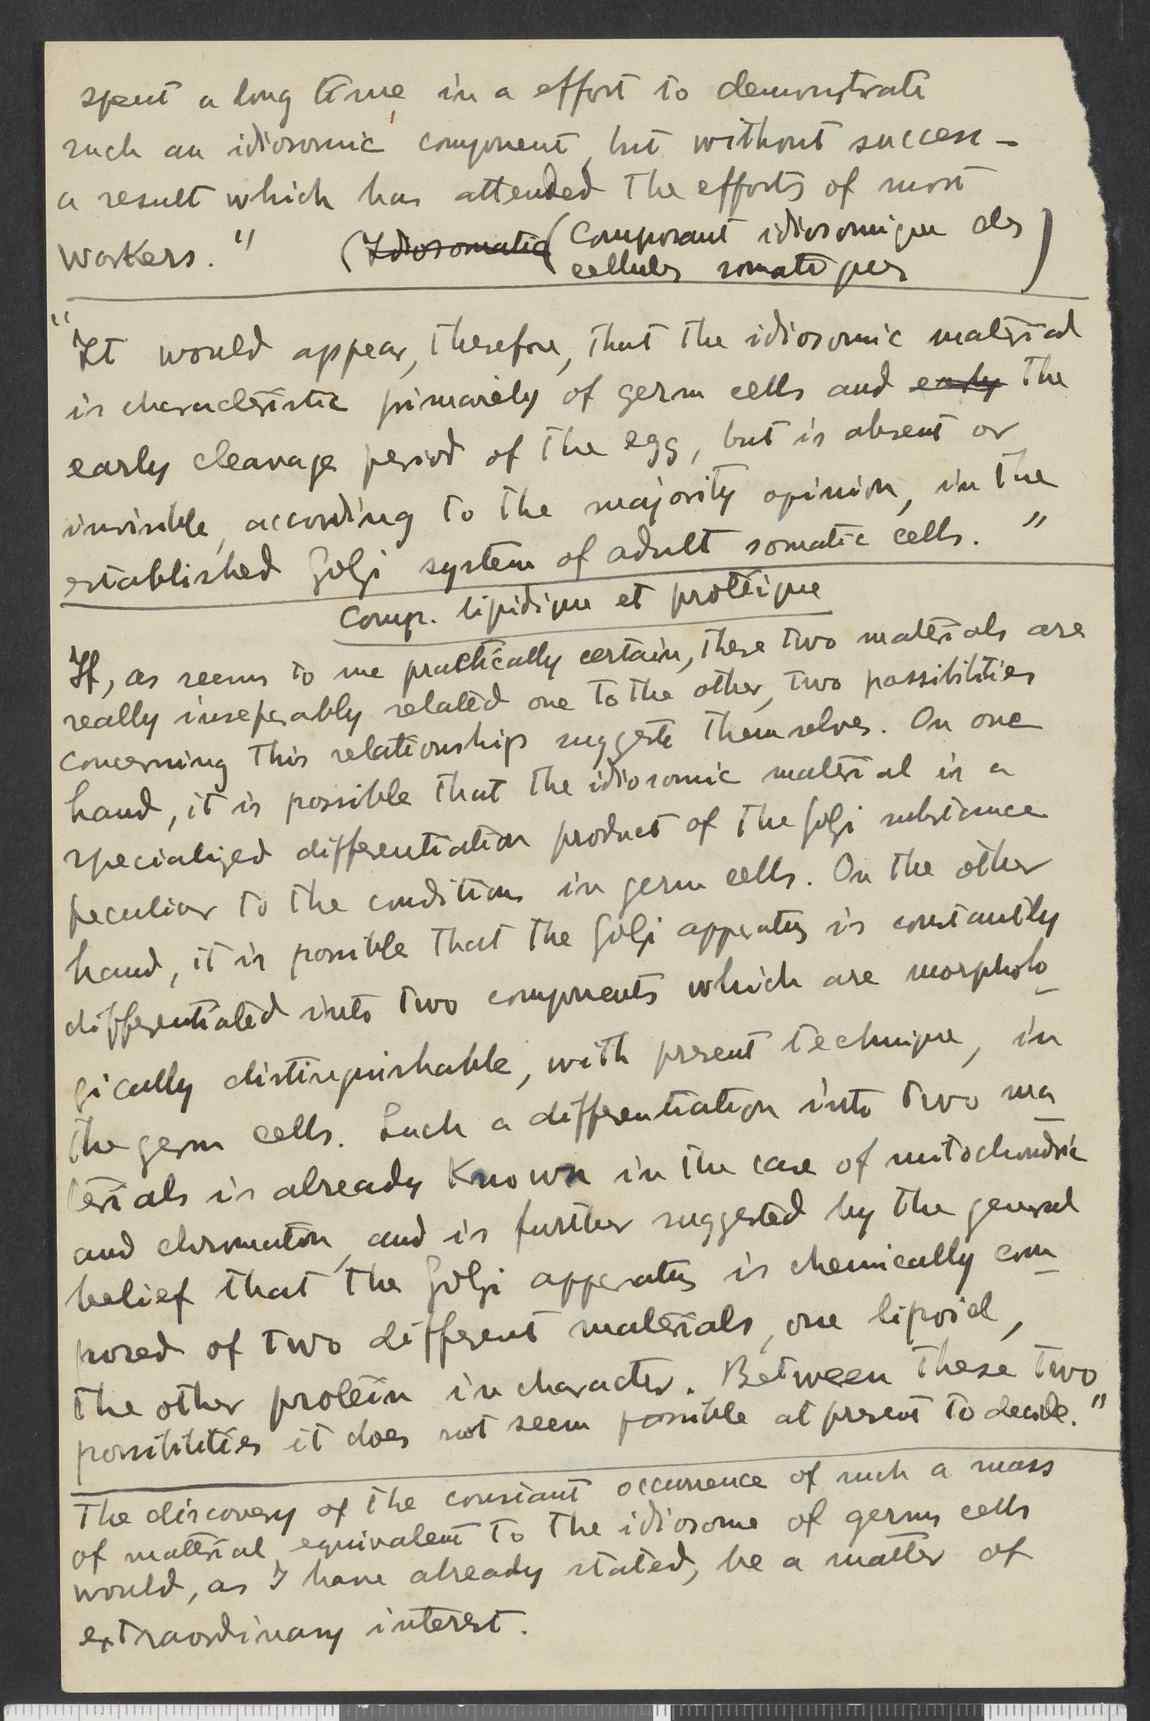 spent a long time in a effort to demonstrate
such an idiosomic component, but without success –
a result which has attended the efforts of most
workers." (Idiosomatic (Composant idiosomique des
cellules somatiques)
"It would appear, therefore, that the idiosomic material
is characteristic primarily of germ cells and early the
early cleavage period of the egg, but is absent or
invisible, according to the majority opinion, in the
established Golgi system of adult somatic cells."
Comp. lipidique et protéique
If, as seems to me practically certain, these two materials are
really inseperably related one to the other, two possibilities
concerning this relationship suggests themselves. On one
hand, it is possible that the idiosomic material is a
specialized differentiation product of the Golgi substance
peculiar to the conditions in germ cells. On the other
hand, it is possible that the Golgi apparatus is constantly
differentiated into two components which are morpholo-
gically distinguishable, with present technique, in
the germ cells. Such a differentiation into two ma-
terials is already known in the case of mitochondria
and chromatin, and is further suggested by the general
belief that the Golgi apparatus is chemically com-
posed of two different materials, one lipoid,
the other protein in character. Between these two
possibilities it does not seem possible at present to decide."
The discovery of the constant occurrence of such a mass
of material equivalent to the idiosome of germ cells
would, as I have already stated, be a matter of
extraordinary interest.